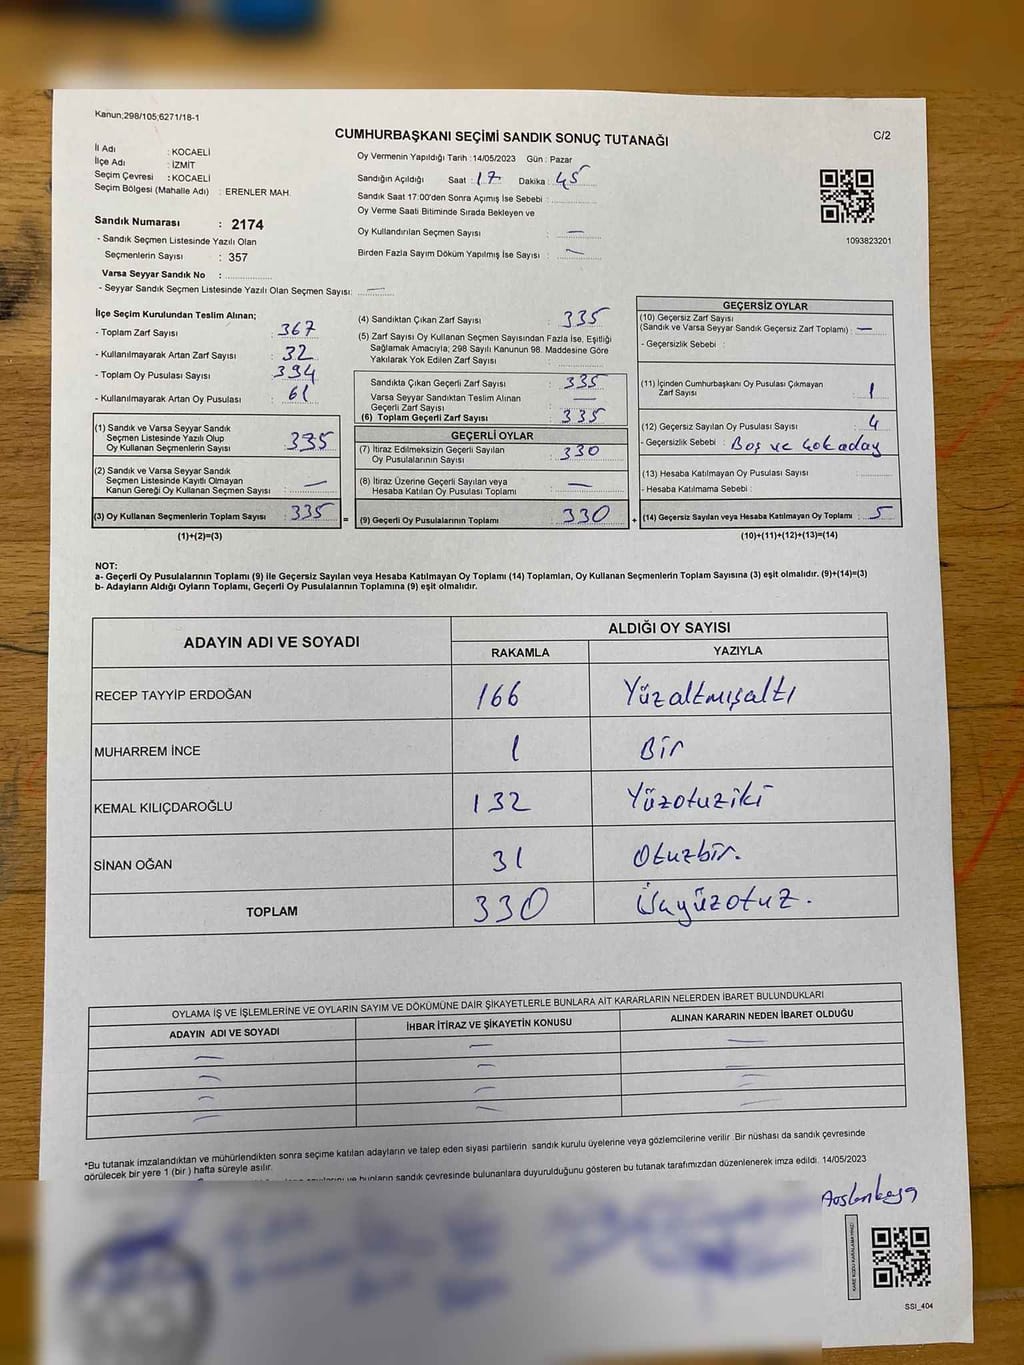 Kanun;298/105;6271/18-1
CUMHURBAŞKANI SEÇİMİ SANDIK SONUÇ TUTANAĞI
C/2
İl Adı : KOCAELİ
İlçe Adı : İZMİT
Seçim Çevresi : KOCAELİ
Seçim Bölgesi (Mahalle Adı) : ERENLER MAH.
Sandık Numarası : 2174
- Sandık Seçmen Listesinde Yazılı Olan
Seçmenlerin Sayısı : 357
Varsa Seyyar Sandık No :
- Seyyar Sandık Seçmen Listesinde Yazılı Olan Seçmen Sayısı: —
Oy Vermenin Yapıldığı Tarih : 14/05/2023 Gün : Pazar
Sandığın Açıldığı Saat : 17 Dakika : 45
Sandık Saat 17:00'den Sonra Açımış İse Sebebi :
Oy Verme Saati Bitiminde Sırada Bekleyen ve
Oy Kullandırılan Seçmen Sayısı : —
Birden Fazla Sayım Döküm Yapılmış İse Sayısı : —
1093823201
İlçe Seçim Kurulundan Teslim Alınan;
- Toplam Zarf Sayısı : 367
- Kullanılmayarak Artan Zarf Sayısı : 32
- Toplam Oy Pusulası Sayısı : 394
- Kullanılmayarak Artan Oy Pusulası : 61
(1) Sandık ve Varsa Seyyar Sandık
Seçmen Listesinde Yazılı Olup
Oy Kullanan Seçmenlerin Sayısı : 335
(2) Sandık ve Varsa Seyyar Sandık
Seçmen Listesinde Kayıtlı Olmayan
Kanun Gereği Oy Kullanan Seçmen Sayısı : —
(3) Oy Kullanan Seçmenlerin Toplam Sayısı : 335
(1)+(2)=(3)
=
(4) Sandıktan Çıkan Zarf Sayısı : 335
(5) Zarf Sayısı Oy Kullanan Seçmen Sayısından Fazla İse, Eşitliği
Sağlamak Amacıyla; 298 Sayılı Kanunun 98. Maddesine Göre
Yakılarak Yok Edilen Zarf Sayısı :
Sandıkta Çıkan Geçerli Zarf Sayısı : 335
Varsa Seyyar Sandıktan Teslim Alınan
Geçerli Zarf Sayısı : —
(6) Toplam Geçerli Zarf Sayısı : 335
GEÇERLİ OYLAR
(7) İtiraz Edilmeksizin Geçerli Sayılan
Oy Pusulalarının Sayısı : 330
(8) İtiraz Üzerine Geçerli Sayılan veya
Hesaba Katılan Oy Pusulası Toplamı : —
(9) Geçerli Oy Pusulalarının Toplamı : 330
+
GEÇERSİZ OYLAR
(10) Geçersiz Zarf Sayısı
(Sandık ve Varsa Seyyar Sandık Geçersiz Zarf Toplamı) : —
- Geçersizlik Sebebi :
(11) İçinden Cumhurbaşkanı Oy Pusulası Çıkmayan
Zarf Sayısı : 1
(12) Geçersiz Sayılan Oy Pusulası Sayısı : 4
- Geçersizlik Sebebi : Boş ve çok aday
(13) Hesaba Katılmayan Oy Pusulası Sayısı :
- Hesaba Katılmama Sebebi :
(14) Geçersiz Sayılan veya Hesaba Katılmayan Oy Toplamı : 5
(10)+(11)+(12)+(13)=(14)
NOT:
a- Geçerli Oy Pusulalarının Toplamı (9) ile Geçersiz Sayılan veya Hesaba Katılmayan Oy Toplamı (14) Toplamları, Oy Kullanan Seçmenlerin Toplam Sayısına (3) eşit olmalıdır. (9)+(14)=(3)
b- Adayların Aldığı Oyların Toplamı, Geçerli Oy Pusulalarının Toplamına (9) eşit olmalıdır.
ADAYIN ADI VE SOYADI
ALDIĞI OY SAYISI
RAKAMLA YAZIYLA
RECEP TAYYİP ERDOĞAN 166 Yüzaltmışaltı
MUHARREM İNCE 1 Bir
KEMAL KILIÇDAROĞLU 132 Yüzotuziki
SİNAN OĞAN 31 Otuzbir.
TOPLAM 330 Üçyüzotuz.
OYLAMA İŞ VE İŞLEMLERİNE VE OYLARIN SAYIM VE DÖKÜMÜNE DAİR ŞİKAYETLERLE BUNLARA AİT KARARLARIN NELERDEN İBARET BULUNDUKLARI
ADAYIN ADI VE SOYADI İHBAR İTİRAZ VE ŞİKAYETİN KONUSU ALINAN KARARIN NEDEN İBARET OLDUĞU
— — —
— — —
— — —
— — —
*Bu tutanak imzalandıktan ve mühürlendikten sonra seçime katılan adayların ve talep eden siyasi partilerin sandık kurulu üyelerine veya gözlemcilerine verilir .Bir nüshası da sandık çevresinde
görülecek bir yere 1 (bir ) hafta süreyle asılır.
ve bunların sandık çevresinde bulunanlara duyurulduğunu gösteren bu tutanak tarafımızdan düzenlenerek imza edildi. 14/05/2023
SSI_404